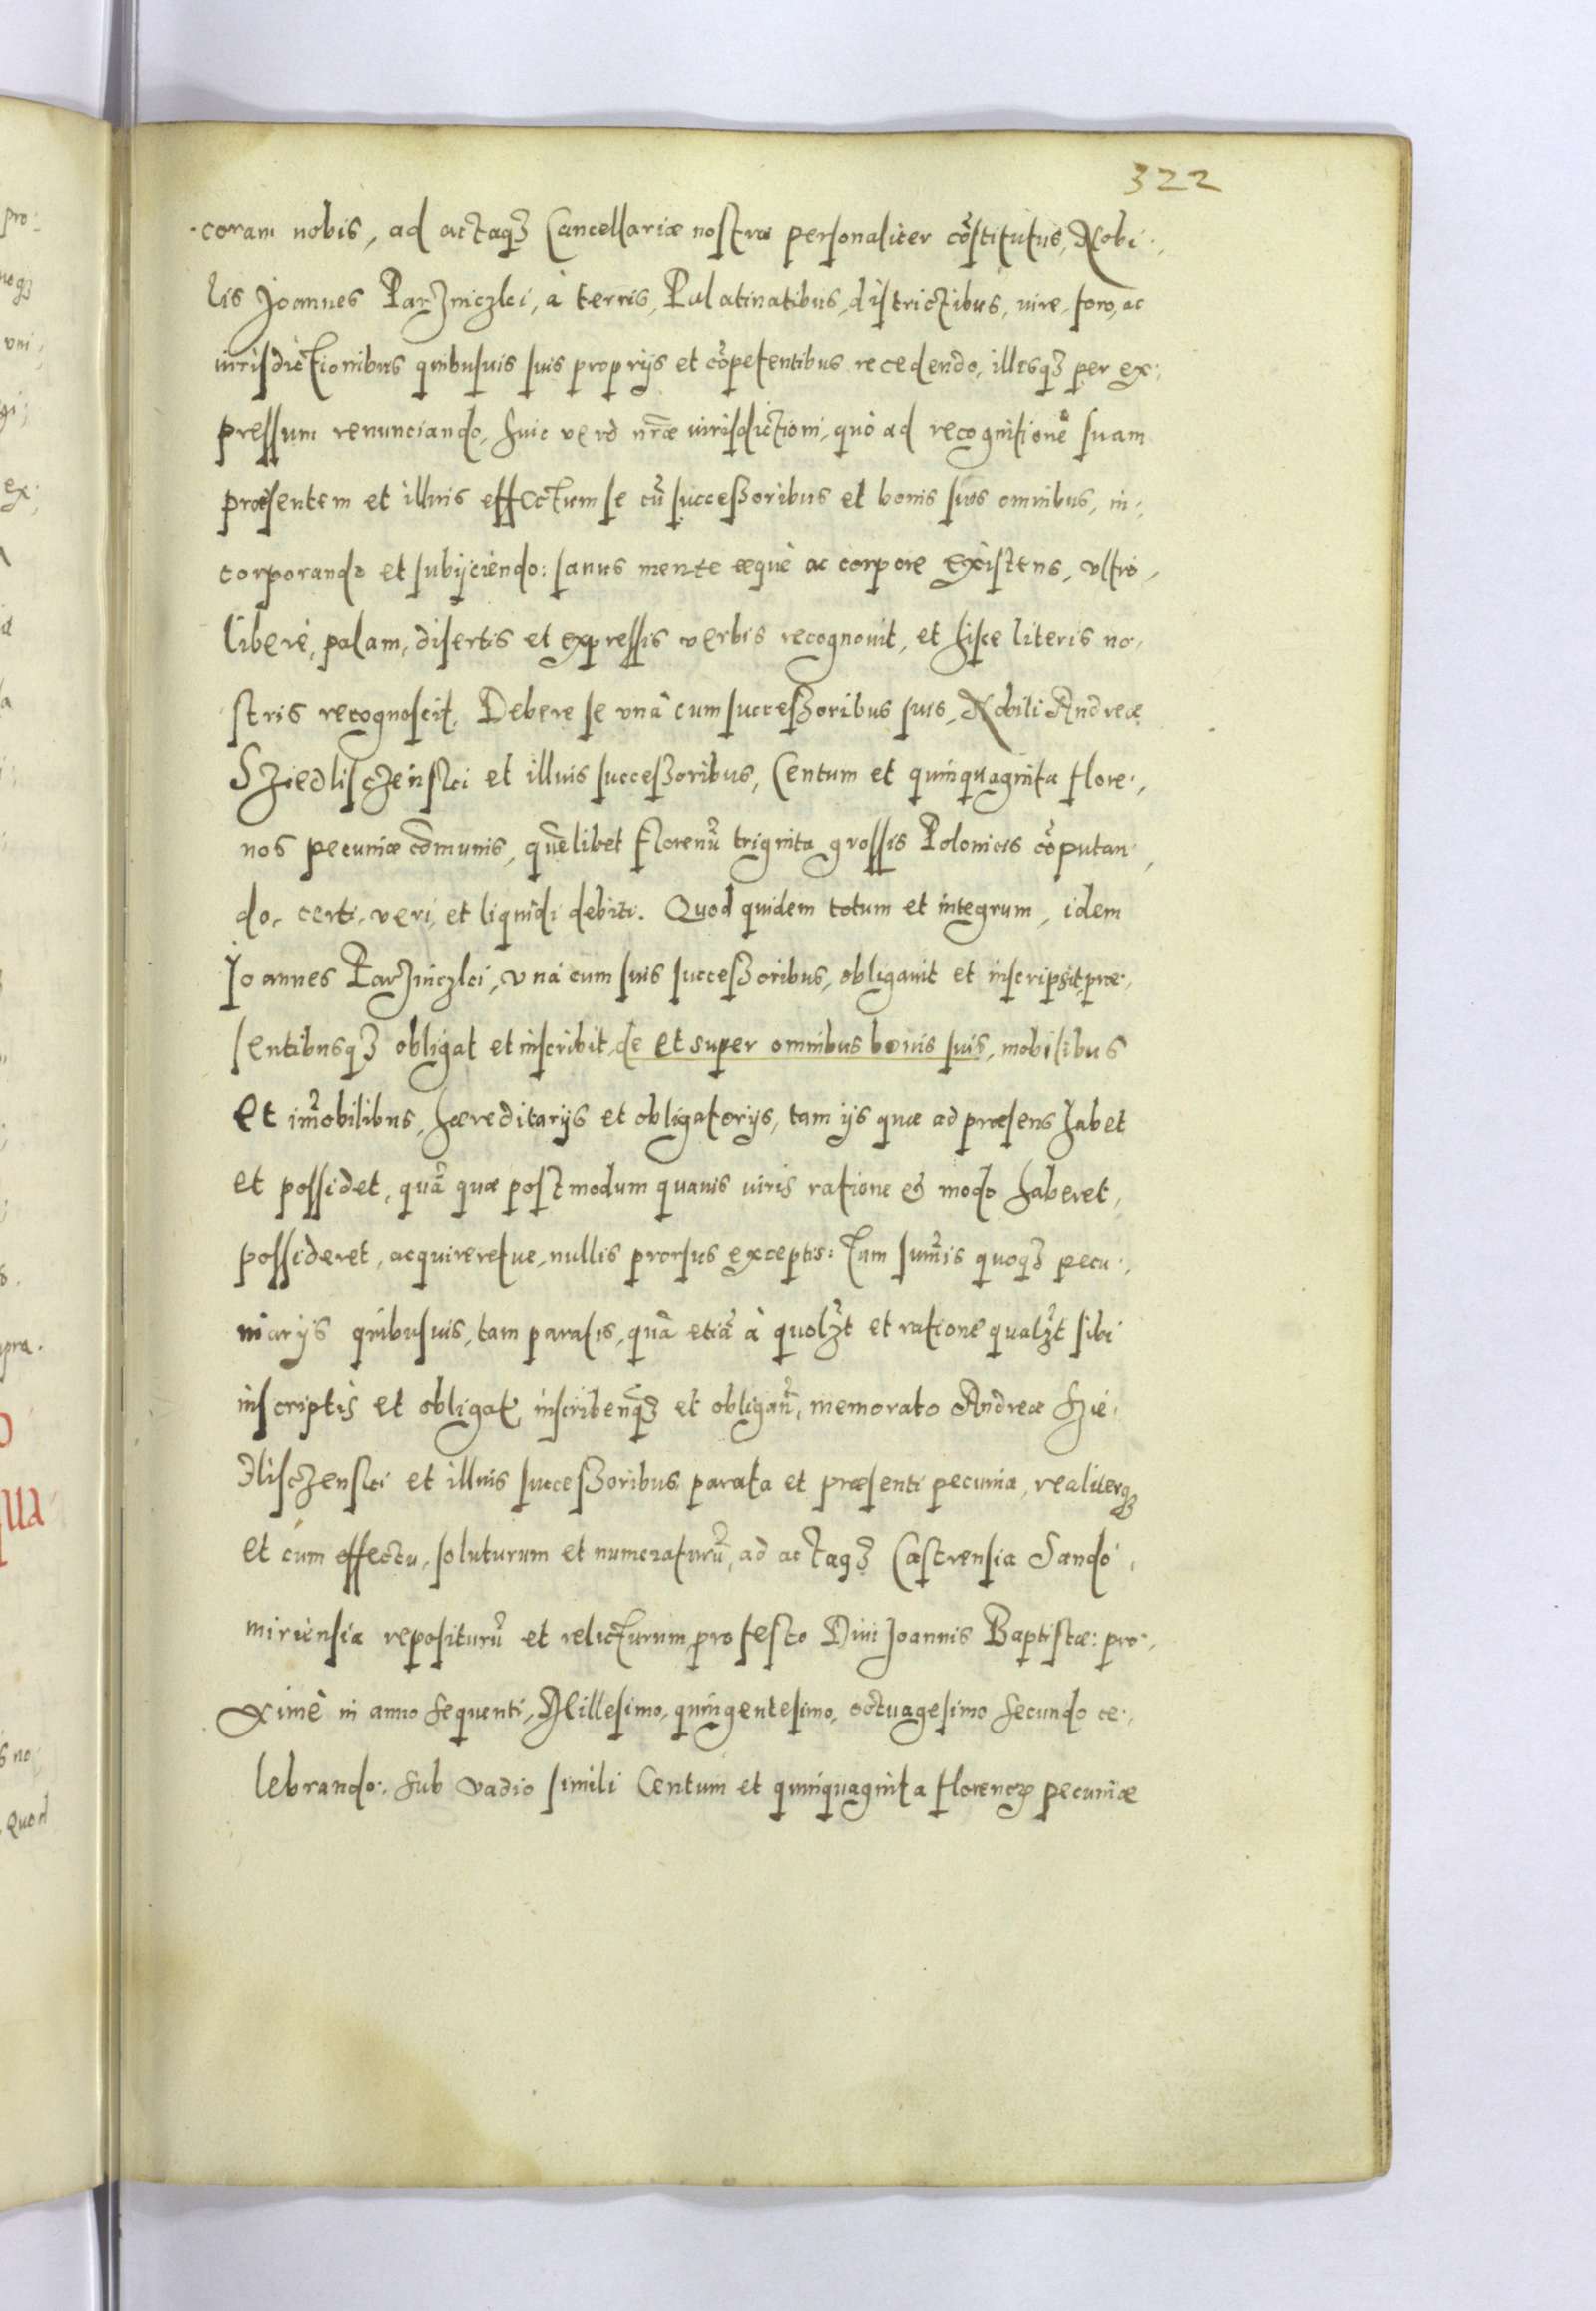 322
coram nobis, ad actaqꝫ Cancellariæ nostræ personaliter cõstitutus, Nobi-
lis Joannes Parzniczki, à terris, Palatinatibus, districtibus, iure, foro, ac
iurisdictionibus quibusuis suis proprijs et cõpetentibus recedendo, illisqꝫ per ex-
pressum renunciando, huic verò nr̃æ iurisdictioni, quò ad recognitionẽ suam
præsentem et illius effectum se cũ successoribus et bonis suis omnibus, in-
corporando et subijciendo: sanus mente æquè ac corpore existens, vltrò,
liberè, palam, disertis et expressis verbis recognouit, et hisce literis no-
stris recognoscit, Debere se vnà cum successoribus suis, Nobili Andreæ
Sziedlisczenski et illius successoribus, Centum et quinquaginta flore-
nos pecuniæ cõmunis, quẽlibet florenũ triginta grossis Polonicis cõputan-
do, certi, veri, et liquidi debiti. Quod quidem totum et integrum, idem
Joannes Parzniczki, vnà cum suis successoribus, obligauit et inscripsit, præ-
sentibusqꝫ obligat et inscribit, de et super omnibus bonis suis, mobilibus
et im̃obilibus, hæreditarijs et obligatorijs, tam ijs quæ ad præsens habet
et possidet, quã quæ postmodum quauis iuris ratione et modo haberet,
possideret, acquireretue, nullis prorsus exceptis: Tum sum̃is quoqꝫ pecu-
niarijs quibusuis, tam paratis, quã etiã à quolꝫt et ratione qualꝫt sibi
inscriptis et obligat, inscribenqꝫ et obligan̄, memorato Andreæ Szie-
dlisczenski et illius successoribus parata et præsenti pecunia, realiterqꝫ
et cum effectu, soluturum et numeraturũ, ad actaqꝫ Castrensia Sando-
miriensia repositurũ et relicturum pro festo Diui Joannis Baptistæ: pro-
ximè in anno sequenti, Millesimo, quingentesimo, octuagesimo secundo ce-
lebrando: sub vadio simili Centum et quinquaginta florenoꝝ pecuniæ